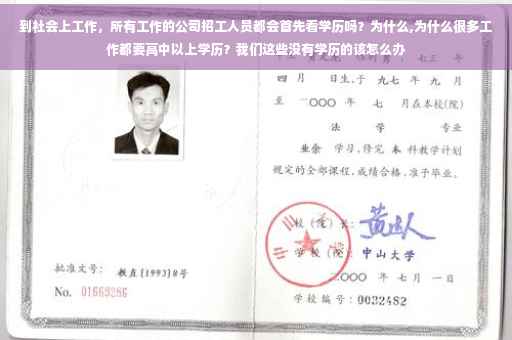 到社会上工作，所有工作的公司招工人员都会首先看学历吗？为什么,为什么很多工
作都要高中以上学历？我们这些没有学历的该怎么办
四 月 日生,于 九七 年 九 月
至 二〇〇〇 年 七 月在本校(院)
法 学 专业
业余 学习,修完 本 科教学计划
规定的全部课程,成绩合格,准予毕业。
校(院)长:
学 校(院): 中山大学
批准文号: 教直[1993]8号
二〇〇〇 年 七 月 一日
No. 01663286
学校编号: 0032482